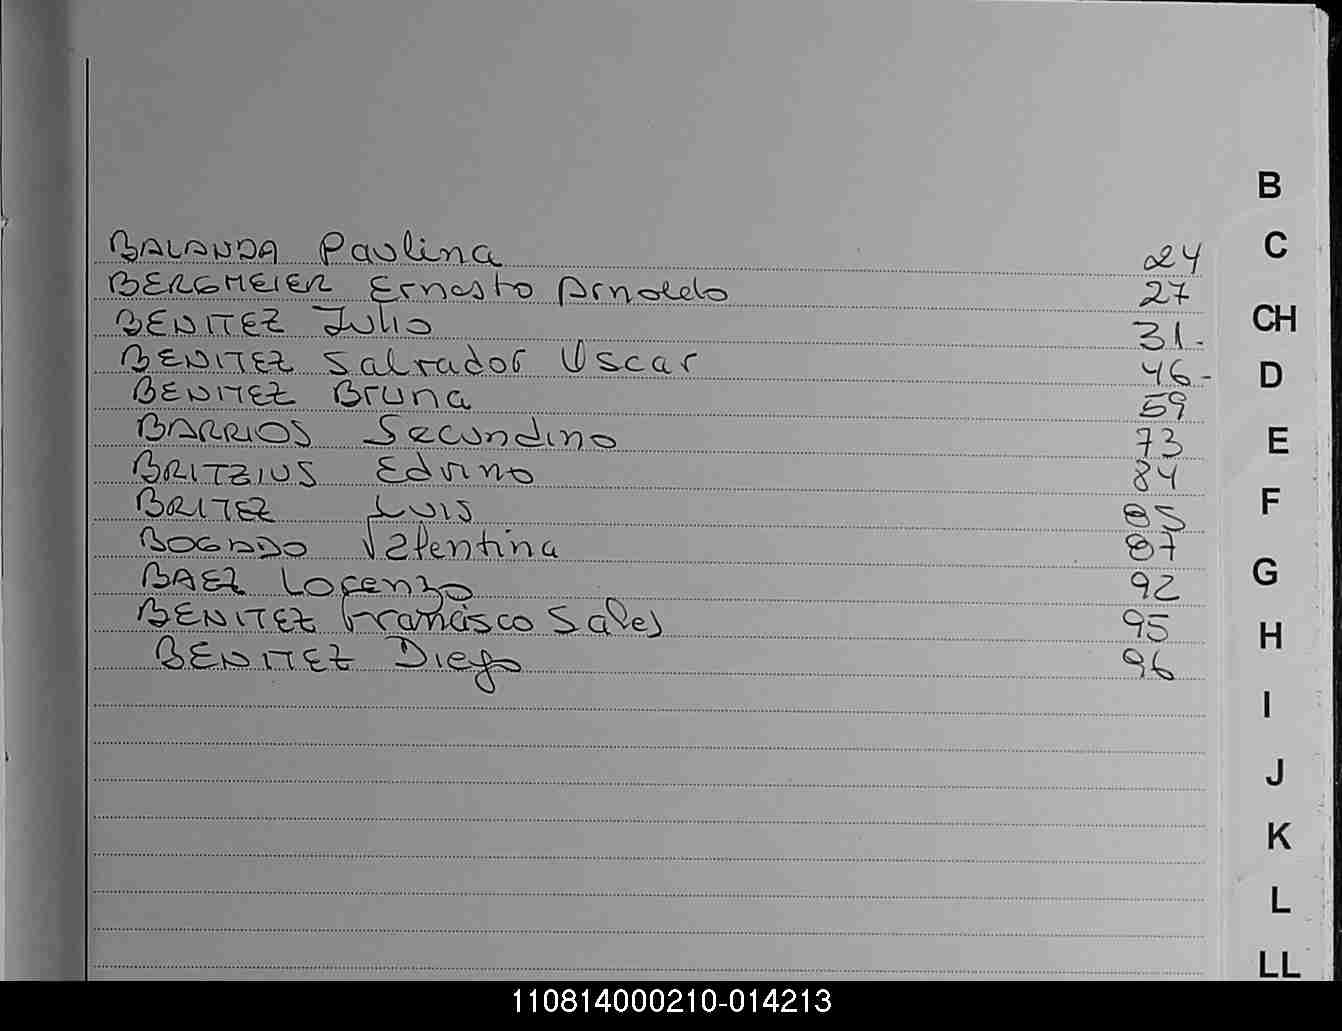 B
BALANDA Paulina 24
C
BERGMEIER Ernesto Arnoldo 27
BENITEZ Julio 31.
CH
BENITEZ Salvador Oscar 46-
D
BENITEZ Bruna 59
BARRIOS Secundino 73
E
BRITZIUS Edvino 84
BRITEZ Luis 85
F
BOGADO Valentina 87
BAEZ Lorenzo 92
G
BENITEZ Francisco Sales 95
H
BENITEZ Diego 96
I
J
K
L
LL
110814000210-014213